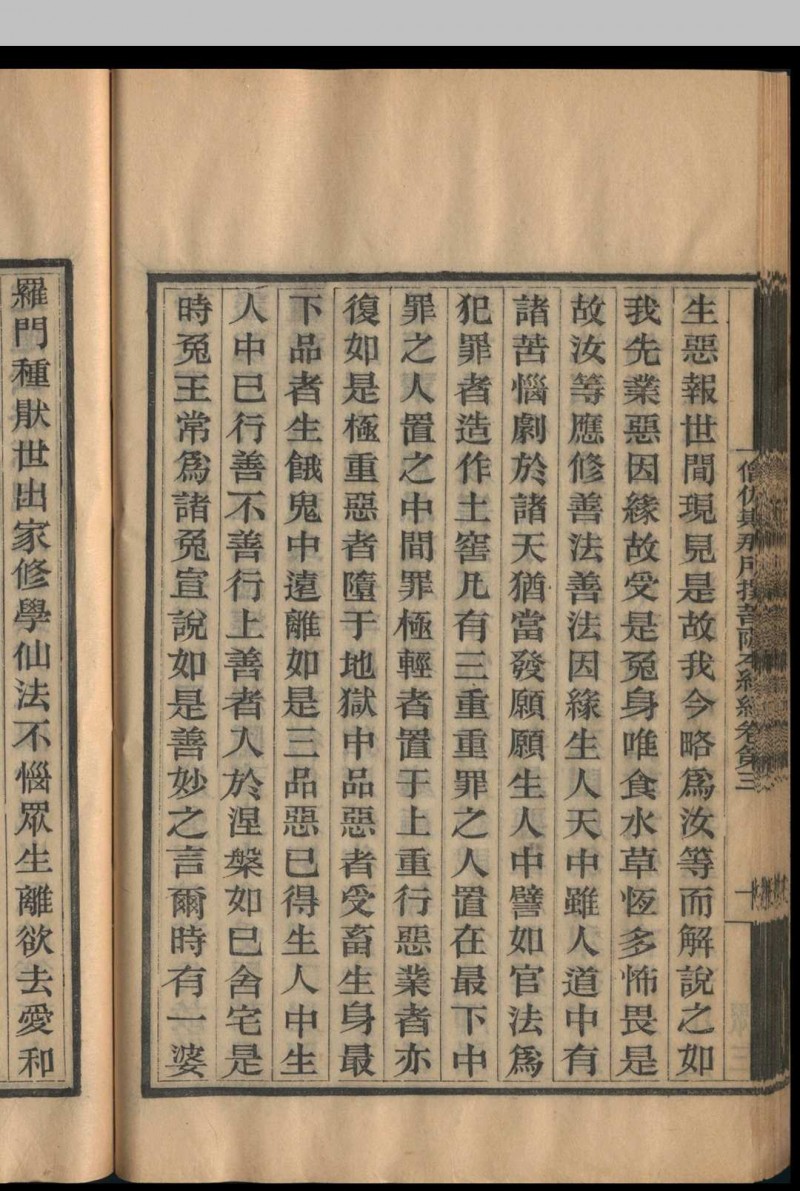 生惡報世間現見是故我今略爲汝等而解說之如
我先業惡因緣故受是兔身唯食水草恆多怖畏是
故汝等應修善法善法因緣生人天中雖人道中有
諸苦惱劇於諸天猶當發願願生人中譬如官法爲
犯罪者造作土窖凡有三重重罪之人置在最下中
罪之人置之中間罪極輕者置于上重行惡業者亦
復如是極重惡者墮于地獄中品惡者受畜生身最
下品者生餓鬼中遠離如是三品惡已得生人中生
人中已行善不善行上善者入於涅槃如已舍宅是
時兔王常爲諸兔宣說如是善妙之言爾時有一婆
羅門種猒世出家修學仙法不惱眾生離欲去愛和